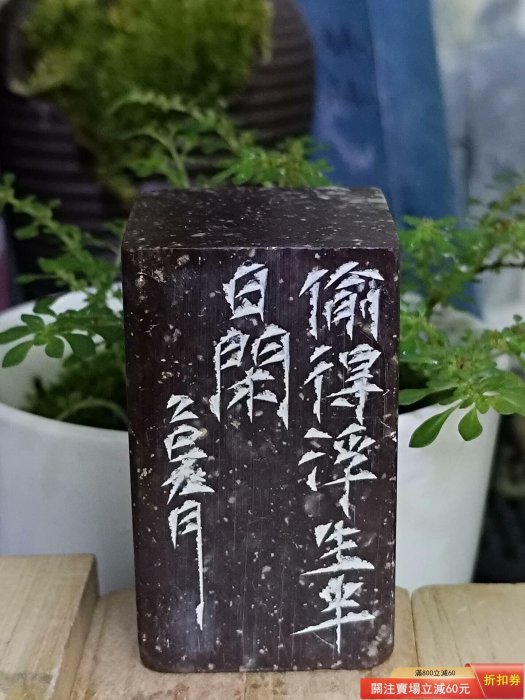 偷得浮生半
日閑
滿800立減60
關注賣場立減60元
折扣券